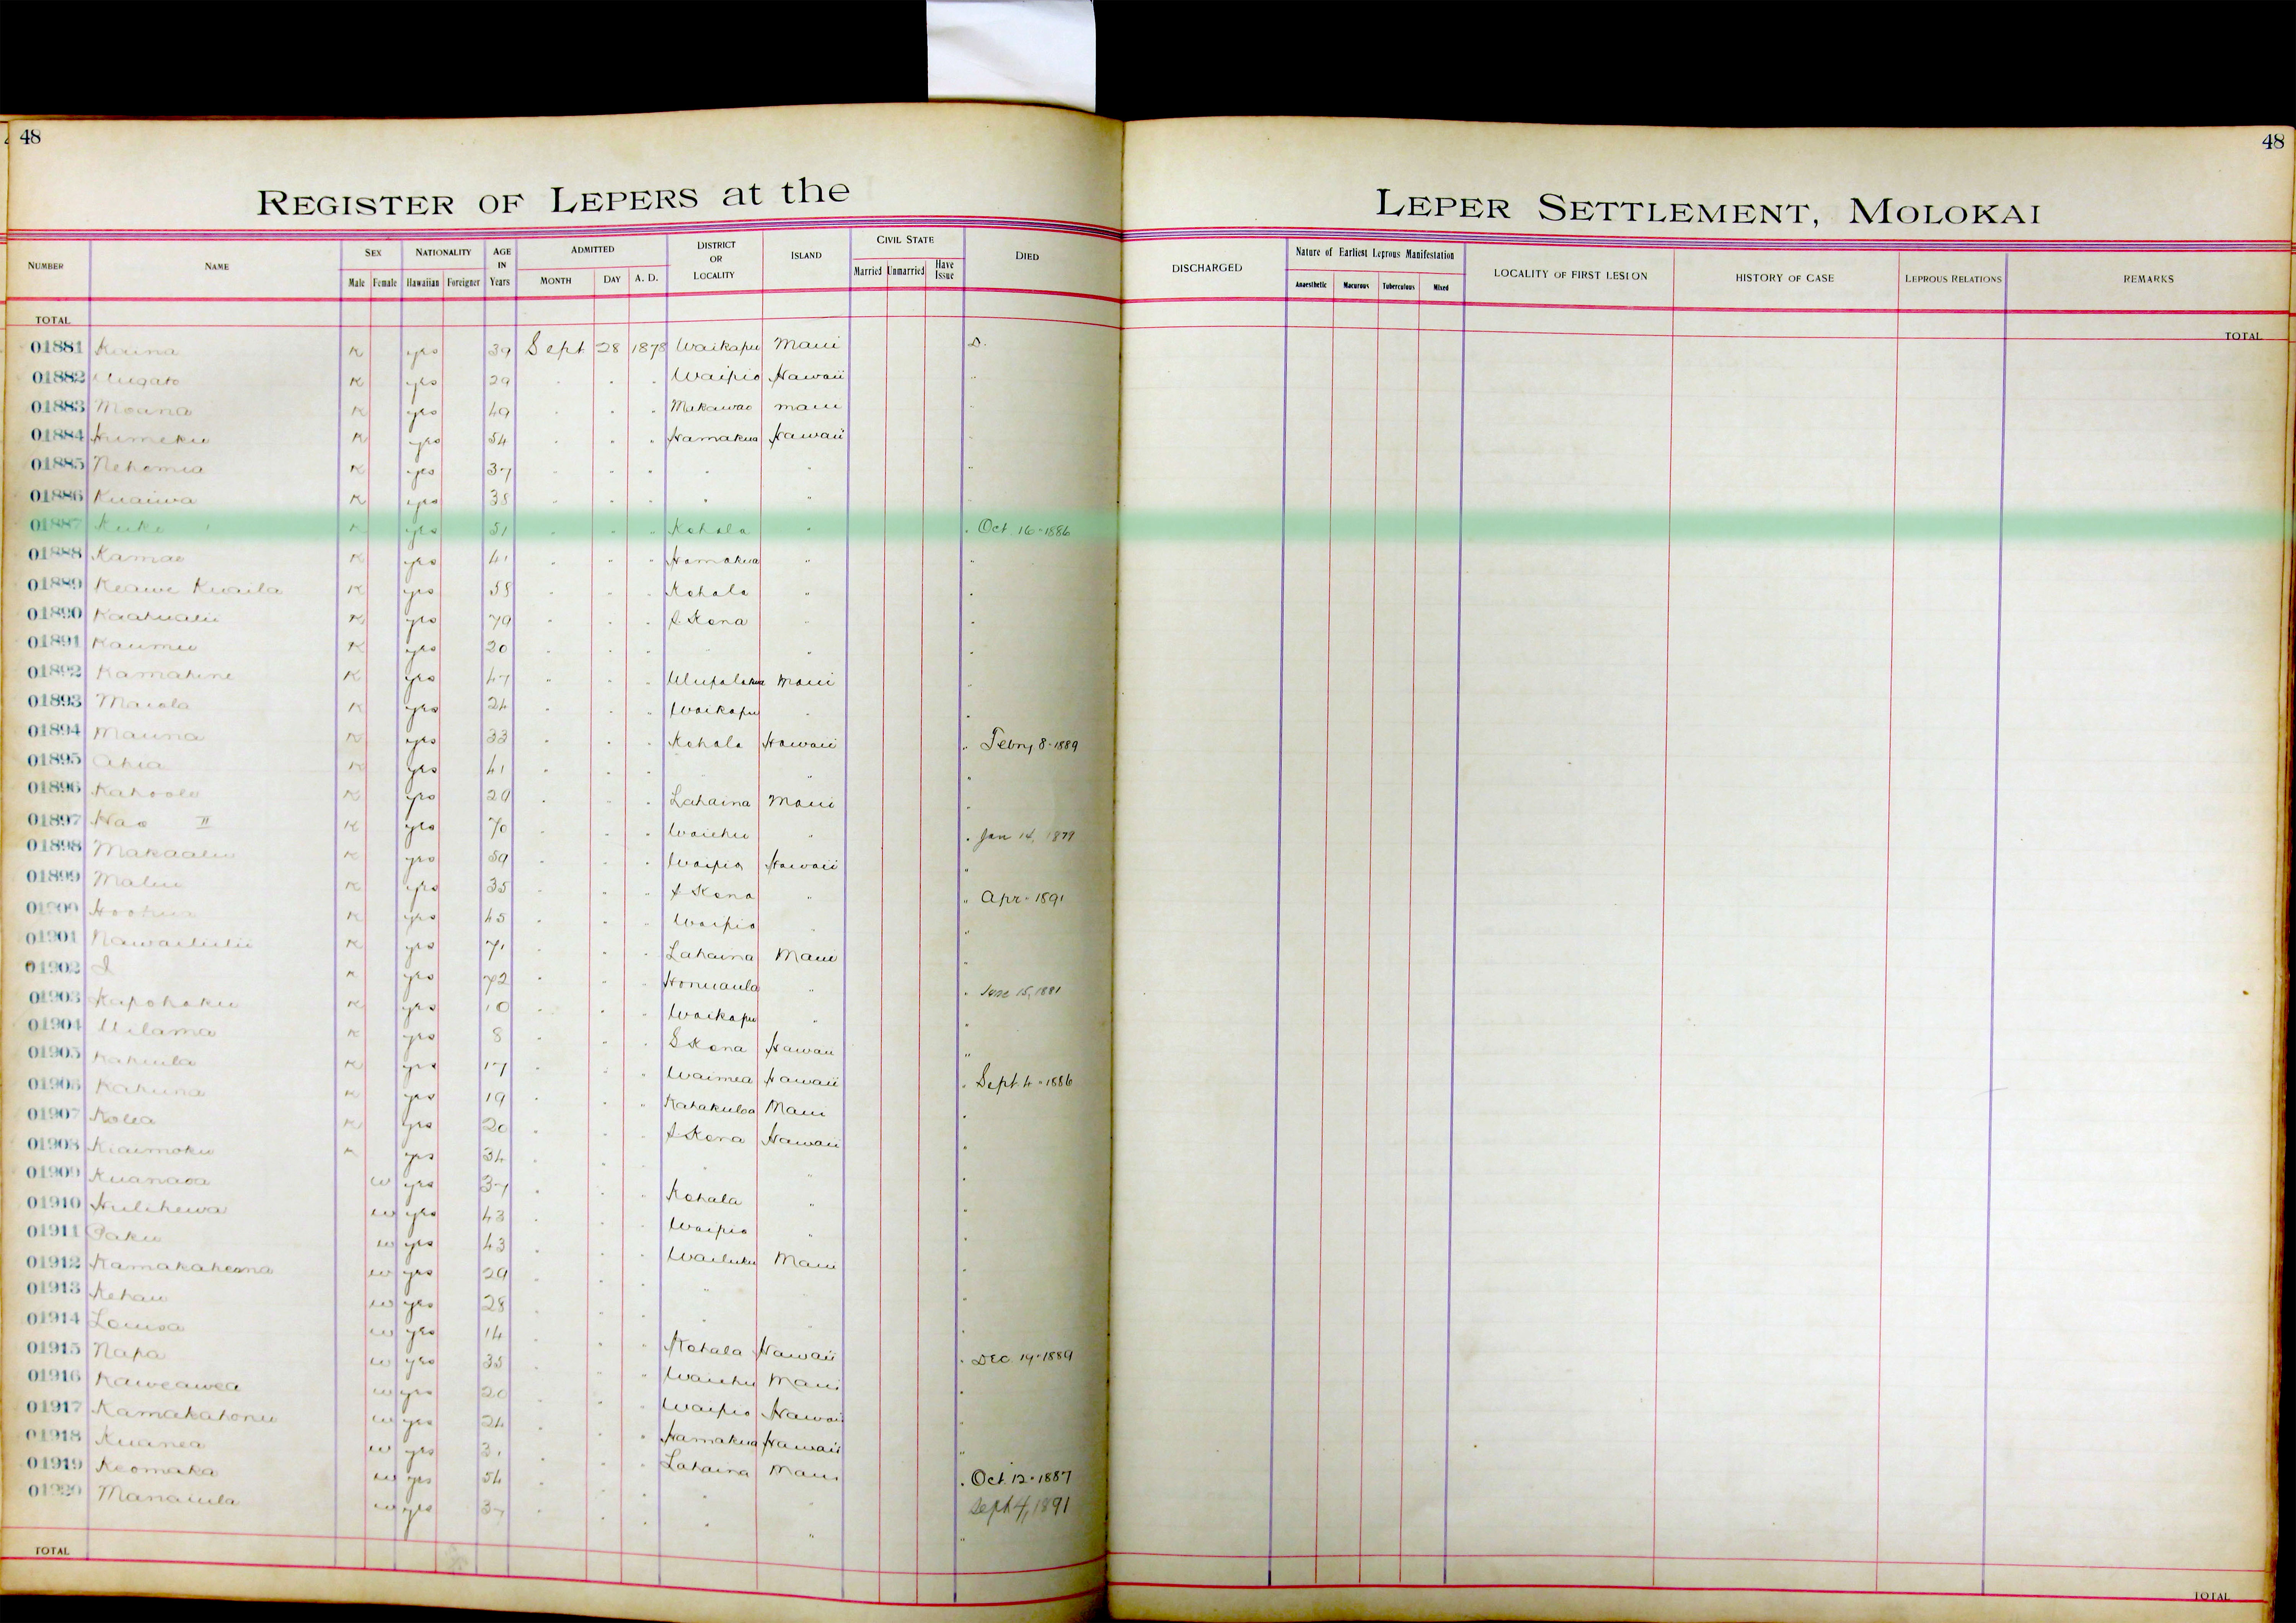 48
48
REGISTER OF LEPERS at the
LEPER SETTLEMENT, MOLOKAI
NUMBER NAME SEX Male Female NATIONALITY Hawaiian Foreigner AGE IN Years ADMITTED MONTH DAY A. D. DISTRICT OR LOCALITY ISLAND CIVIL STATE Married Unmarried Have Issue DIED
DISCHARGED Nature of Earliest Leprous Manifestation Anaesthetic Macurous Tuberculous Mixed LOCALITY OF FIRST LESION HISTORY OF CASE LEPROUS RELATIONS REMARKS
TOTAL
TOTAL
01881 K yes 39 Sept 28 1878 Waikapu Maui D.
01882 K yes 29 " " " Waipio Hawaii "
01883 Moana K yes 49 " " " Makawao Maui "
01884 Humeku K yes 54 " " " Hamakua Hawaii "
01885 Nehemia K yes 37 " " " " " "
01886 Kuaiwa K yes 38 " " " " " "
01887 Keike K yes 51 " " " Kohala " " Oct. 16-1886
01888 Kamao K yes 41 " " " Hamakua " "
01889 Keawe Kuaila K yes 58 " " " Kohala " "
01890 Kaahualii K yes 79 " " " Kona " "
01891 Kaumu K yes 20 " " " " "
01892 Kamahine K yes 47 " " " Ulupalakua Maui "
01893 Maiola K yes 24 " " " Waikapu " "
01894 Mauna K yes 33 " " " Kohala Hawaii " Febry 8-1889
01895 Ahia K yes 41 " " " " "
01896 Kahoole K yes 29 " " " Lahaina Maui "
01897 Hao II K yes 70 " " " Waiehu " " Jan 14, 1879
01898 Makaalu K yes 59 " " " Waipio Hawaii "
01899 Malu K yes 35 " " " Kona " " Apr. 1891
01900 Hoohua K yes 45 " " " Waipio " "
01901 Nawailiilii K yes 71 " " " Lahaina Maui "
01902 I K yes 72 " " " Honuaula " " June 15, 1881
01903 Kapohaku K yes 10 " " " Waikapu " "
01904 Uilama K yes 8 " " " S Kona Hawaii "
01905 Kahiula K yes 17 " " " Waimea Hawaii " Sept. 4-1886
01906 Kahuna K yes 19 " " " Kahakuloa Maui "
01907 Kolea K yes 20 " " " Kona Hawaii "
01908 Kiaimoku K yes 34 " " " " "
01909 Kuanaoa w yes 37 " " " Kohala " "
01910 Hulihewa w yes 43 " " " Waipio " "
01911 Paku w yes 43 " " " Wailuku Maui "
01912 Kamakaheana w yes 29 " " " " "
01913 Kehau w yes 28 " " " " "
01914 Louisa w yes 14 " " " Kohala Hawaii " Dec. 19-1889
01915 Napa w yes 35 " " " Waiehu Maui "
01916 Kaweawea w yes 20 " " " Waipio Hawaii "
01917 Kamakahonu w yes 24 " " " Hamakua Hawaii "
01918 Kuanea w yes 31 " " " Lahaina Maui " Oct 12-1887
01919 Keomaka w yes 54 " " " " " Sept 4, 1891
01920 Manaiula w yes 37 " " " " " "
TOTAL
TOTAL